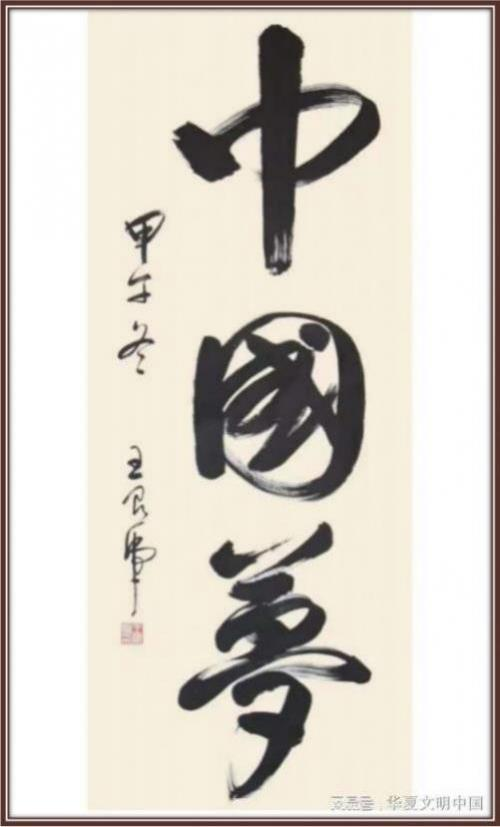 中國夢
甲午冬
王良虎
华夏文明中国